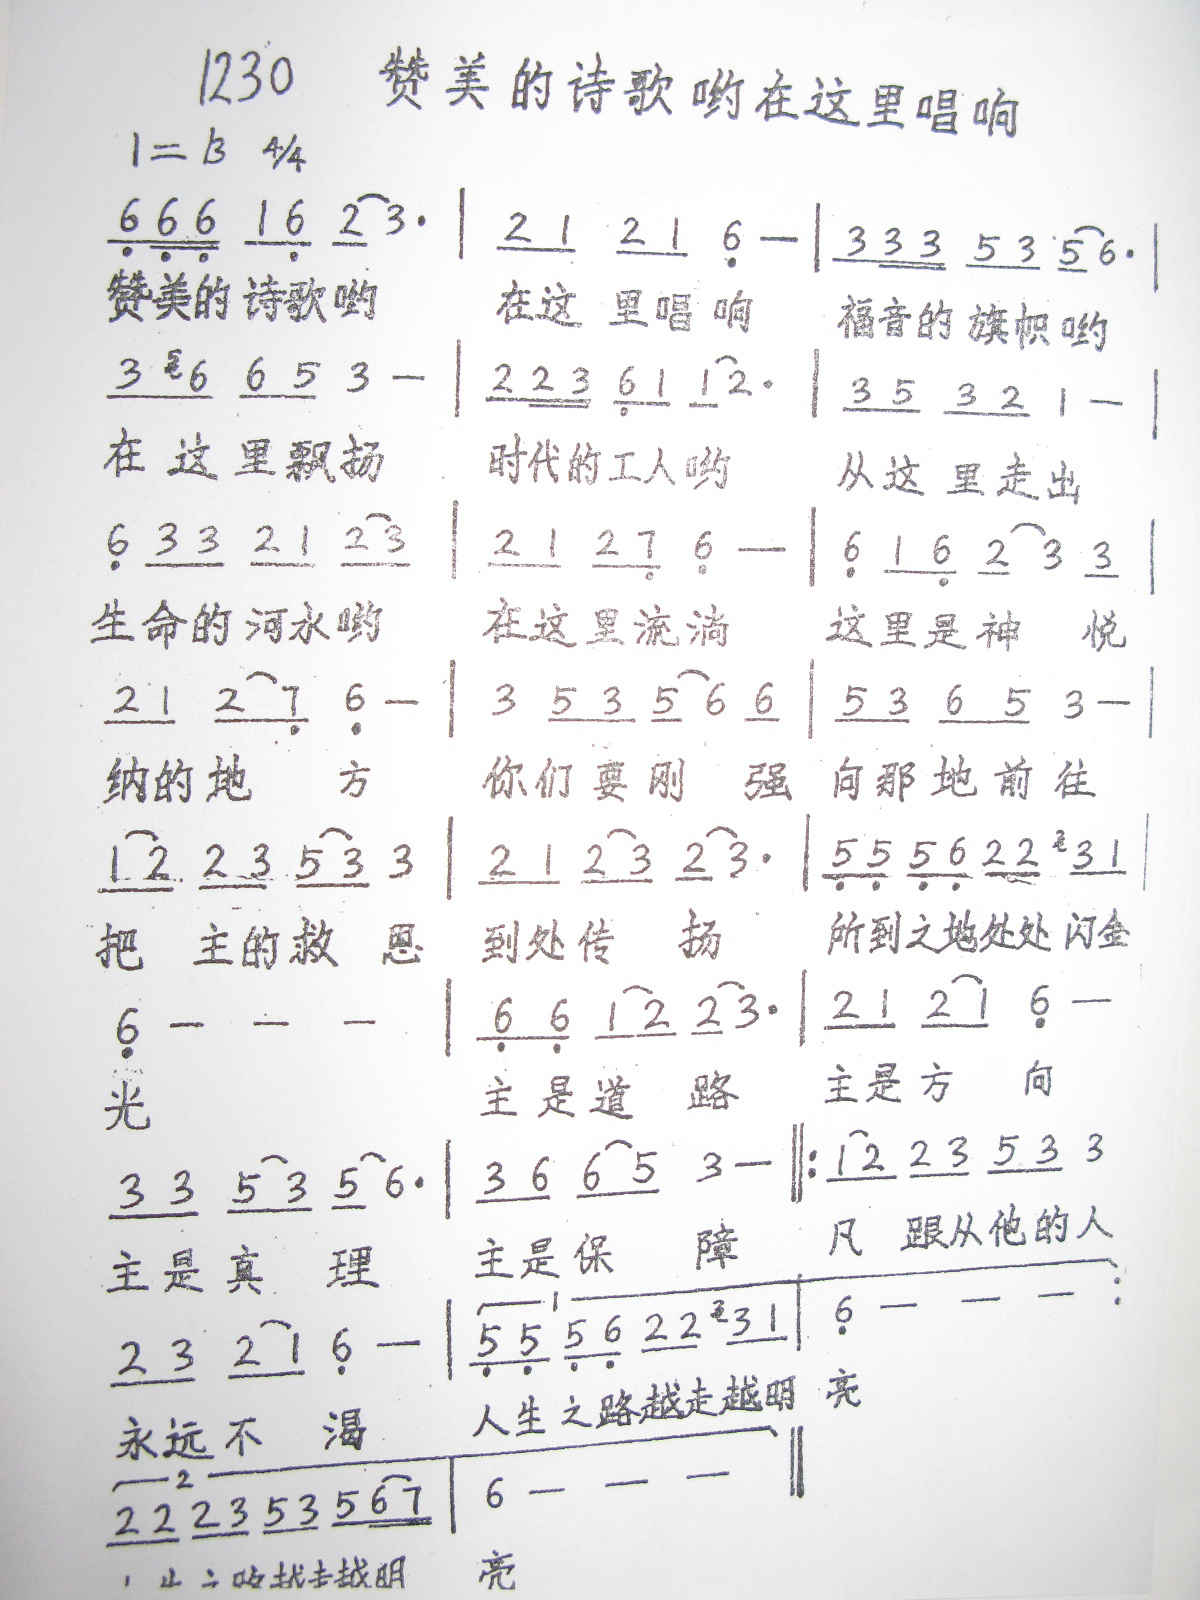 1230 赞美的诗歌哟在这里唱响
1=B 4/4
6 6 6 1 6 2 3· | 2 1 2 1 6 — | 3 3 3 5 3 5 6· |
赞美的诗歌哟 在这里唱响 福音的旗帜哟
3 6 6 5 3 — | 2 2 3 6 1 1 2· | 3 5 3 2 1 — |
在这里飘扬 时代的工人哟 从这里走出
6 3 3 2 1 2 3 | 2 1 2 7 6 — | 6 1 6 2 3 3 |
生命的河水哟 在这里流淌 这里是神 悦
2 1 2 7 6 — | 3 5 3 5 6 6 | 5 3 6 5 3 — |
纳的地 方 你们要刚 强 向那地前往
1 2 2 3 5 3 3 | 2 1 2 3 2 3· | 5 5 5 6 2 2 2 3 1 |
把 主的救 恩 到处传 扬 所到之地处处闪金
6 — — — | 6 6 1 2 2 3· | 2 1 2 1 6 —
光 主是道 路 主是方 向
3 3 5 3 5 6· | 3 6 6 5 3 — ‖: 1 2 2 3 5 3 3
主是真 理 主是保 障 凡 跟从他的人
2 3 2 1 6 — | 1 5 5 5 6 2 2 2 3 1 | 6 — — — :
永远不 渴 人生之路越走越明 亮
2 2 2 2 3 5 3 5 6 7 | 6 — — — ‖
人生之路越走越明 亮